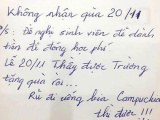 Không nhận quà 20/11
P/s: Đề nghị sinh viên để dành
tiền để đóng học phí
Lễ 20/11 Thầy được Trường
tặng quà rồi...
Rủ đi uống bia Campuchia
thì được!!!